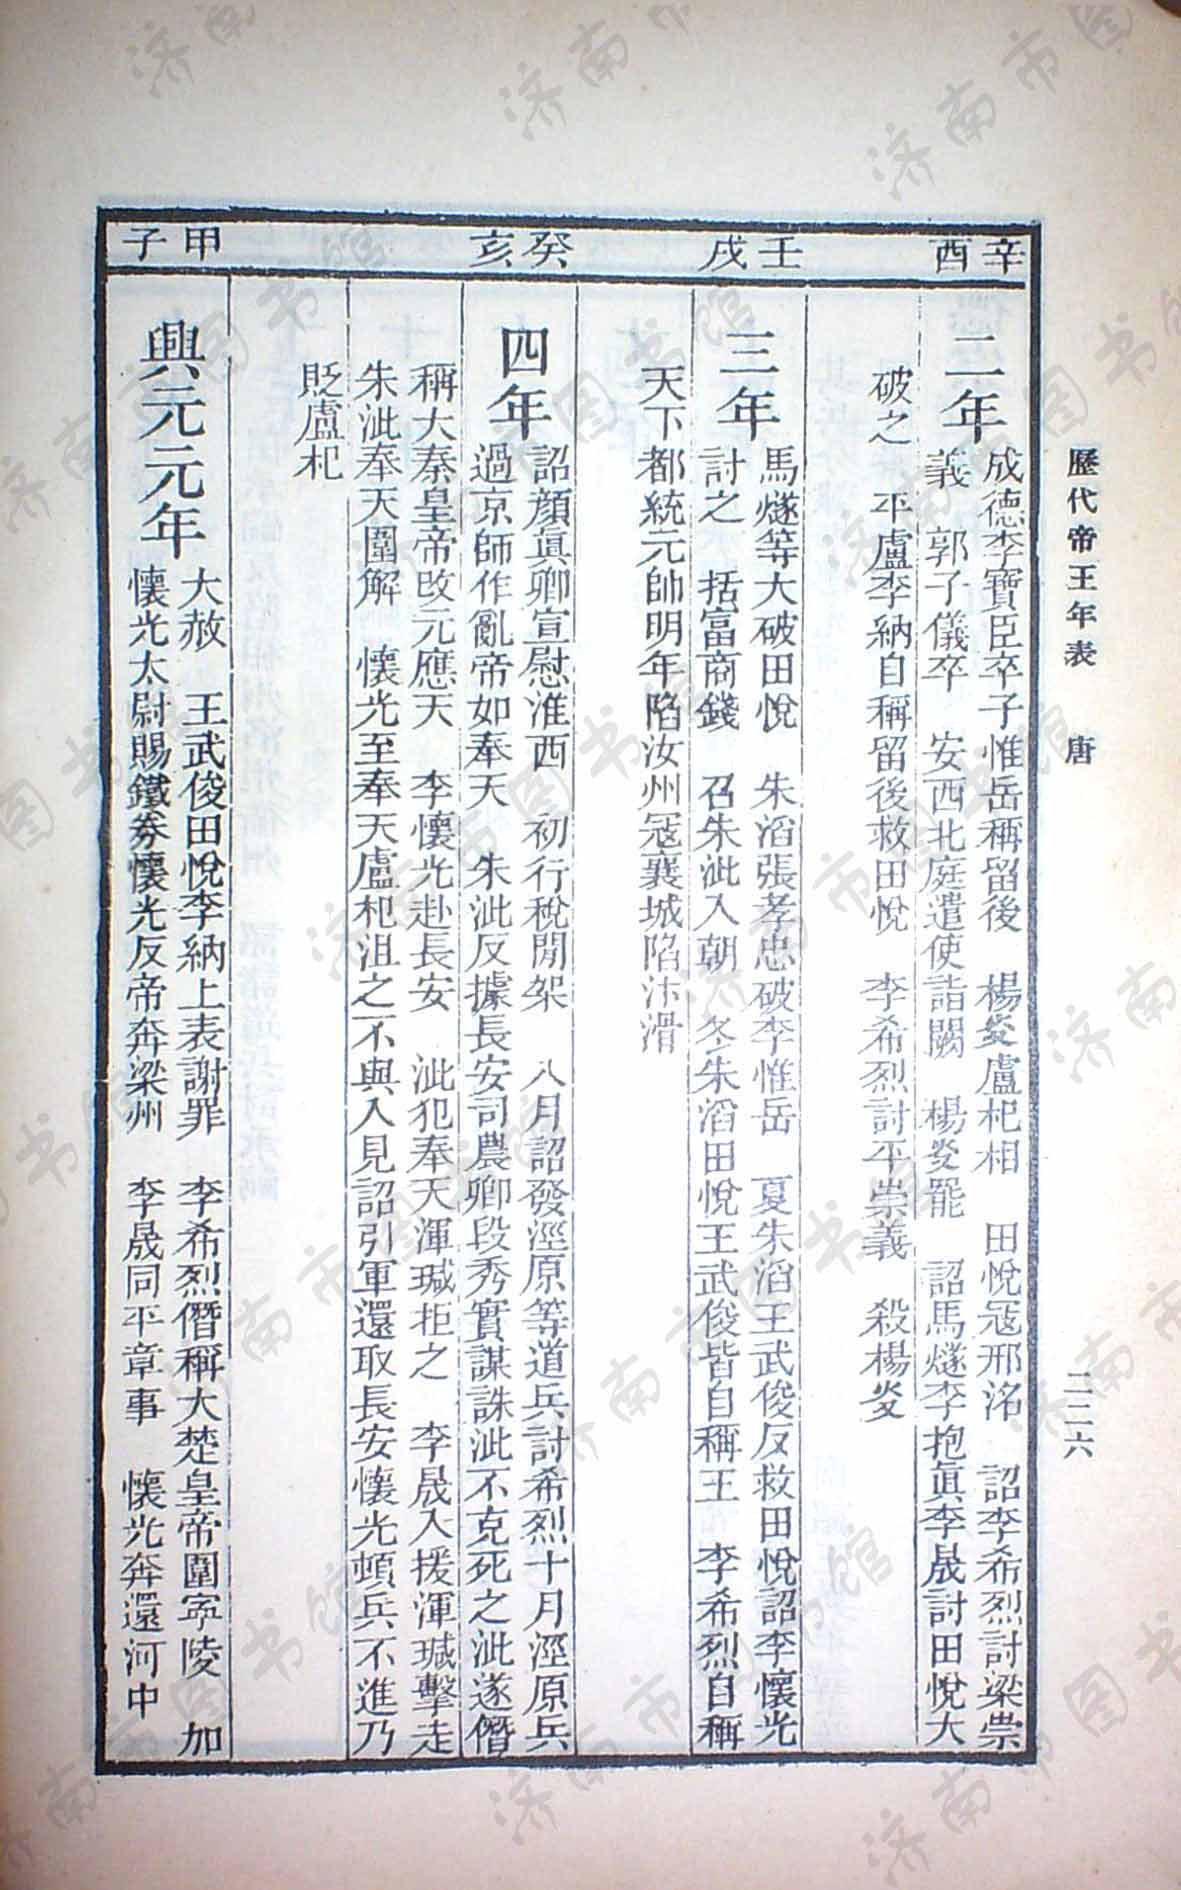 歷代帝王年表 唐 二二六
辛酉
二年
成德李寶臣卒子惟岳稱留後 楊炎盧杞相 田悅寇邢洺 詔李希烈討梁崇
義 郭子儀卒 安西北庭遣使詣闕 楊炎罷 詔馬燧李抱眞李晟討田悅大
破之 平盧李納自稱留後救田悅 李希烈討平崇義 殺楊炎
壬戌
三年
馬燧等大破田悅 朱滔張孝忠破李惟岳 夏朱滔王武俊反救田悅詔李懷光
討之 括富商錢 召朱泚入朝 冬朱滔田悅王武俊皆自稱王 李希烈自稱
天下都統元帥明年陷汝州寇襄城陷汴滑
癸亥
四年
詔顏眞卿宣慰淮西 初行稅閒架 八月詔發涇原等道兵討希烈十月涇原兵
過京師作亂帝如奉天 朱泚反據長安司農卿段秀實謀誅泚不克死之泚遂僭
稱大秦皇帝改元應天 李懷光赴長安 泚犯奉天渾瑊拒之 李晟入援渾瑊擊走
朱泚奉天圍解 懷光至奉天盧杞沮之不與入見詔引軍還取長安懷光頓兵不進乃
貶盧杞
甲子
興元元年
大赦 王武俊田悅李納上表謝罪 李希烈僭稱大楚皇帝圍寧陵 加
懷光太尉賜鐵券懷光反帝奔梁州 李晟同平章事 懷光奔還河中
济南市图书馆